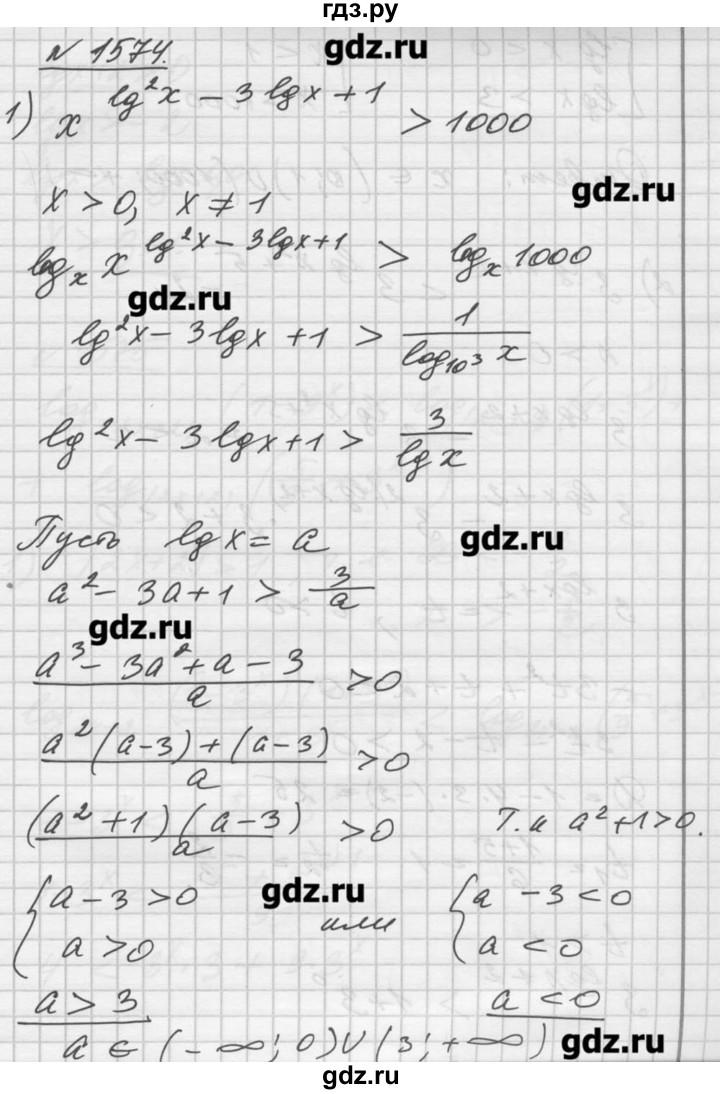 гдз.ру
N 1574.
gdz.ru
1) x^(lg²x − 3lgx + 1) > 1000
gdz.ru
x > 0, x ≠ 1
log_x x^(lg²x − 3lgx + 1) > log_x 1000
gdz.ru
lg²x − 3lgx + 1 > 1/(log_(10³) x)
lg²x − 3lgx + 1 > 3/(lg x)
Пусть lgx = a
gdz.ru
a² − 3a + 1 > 3/a
gdz.ru
(a³ − 3a² + a − 3)/a > 0
(a²(a−3) + (a−3))/a > 0
((a² + 1)(a−3))/a > 0 Т.к a² + 1 > 0.
{ a − 3 > 0 gdz.ru { a − 3 < 0
или
a > 0 a < 0
a > 3 a < 0
a ∈ (−∞; 0) ∪ (3; +∞)
gdz.ru
gdz.ru